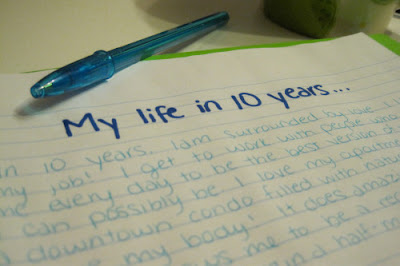 My life in 10 years...
in 10 years. I am surrounded by love. I l
my job! I get to work with people who
me every day to be the best version of
I can possibly be. I love my apartme
a downtown condo filled with natur
my body! It does amaz
me to be a re
half-ma